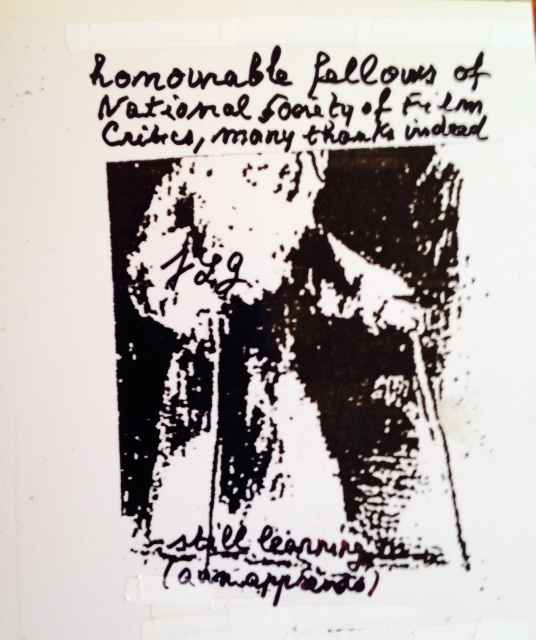 honourable fellows of
National Society of Film
Critics, many thanks indeed
JLG
still learning
(aun apprendo)